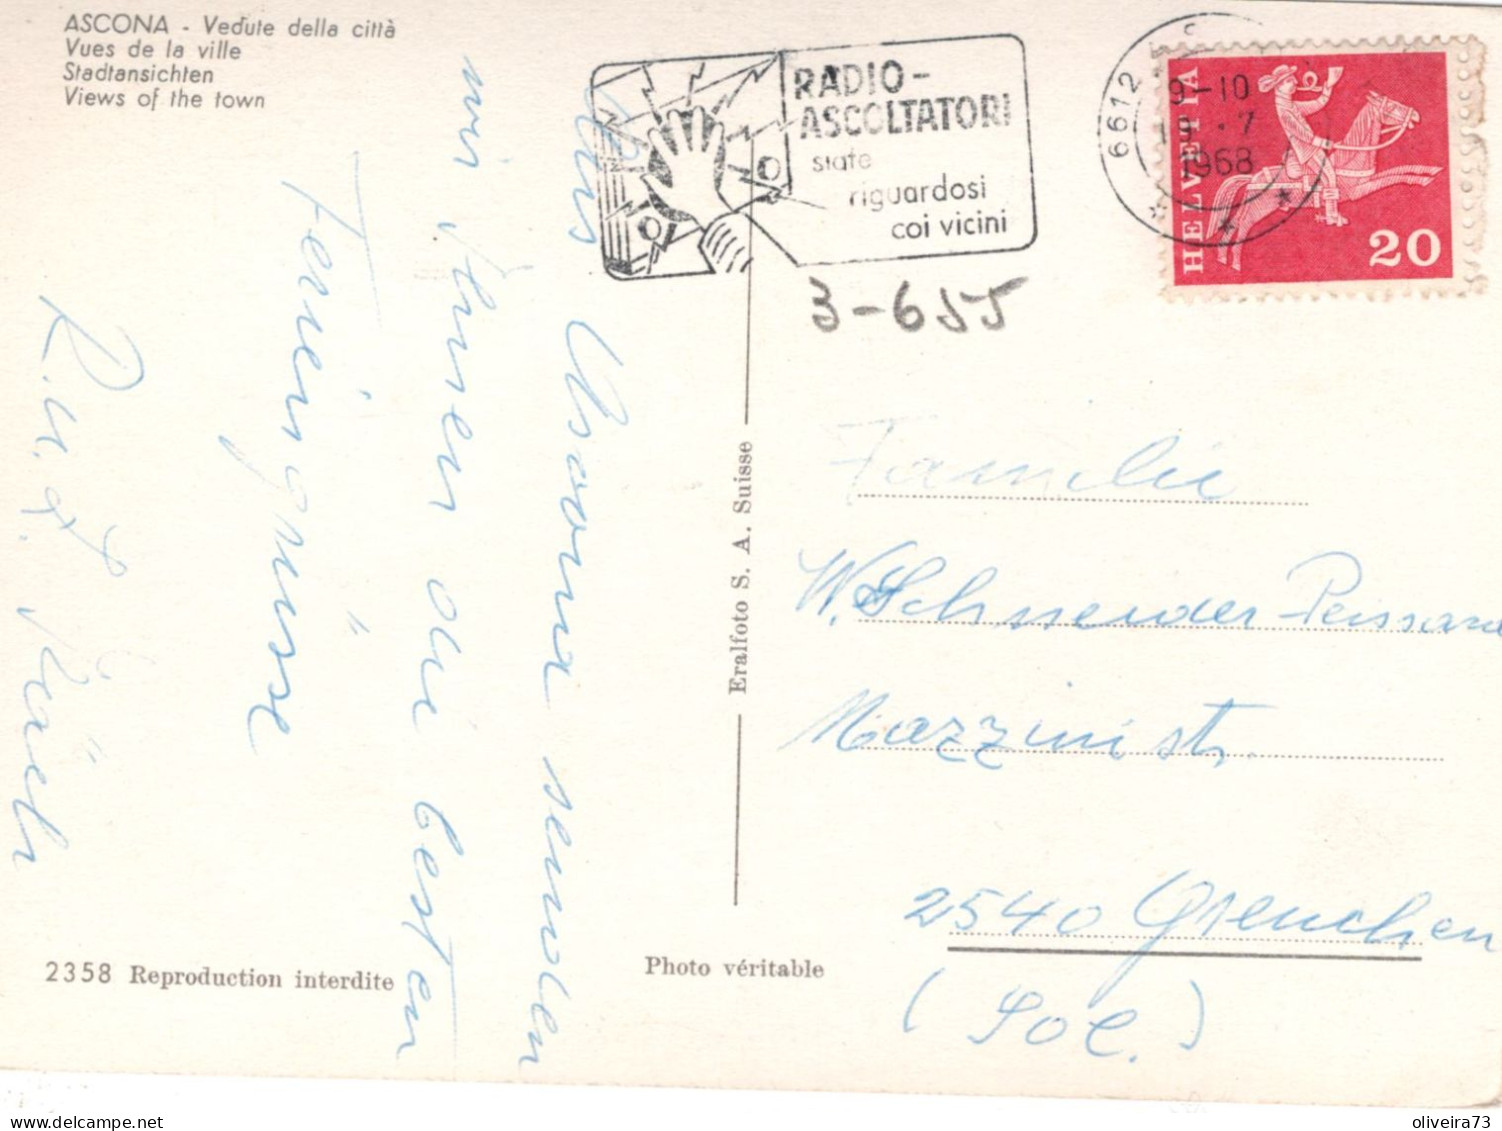 ASCONA - Vedute della città
Vues de la ville
Stadtansichten
Views of the town
RADIO-
ASCOLTATORI
state
riguardosi
coi vicini
6612
9-10
19.-7
1968
HELVETIA
20
3-655
Aus Ascona senden
wir Ihnen die besten
Feriengrüsse
R. u. F. Käch
Familie
W. Schneider-
Mazzinistr.
2540 Grenchen
(Sol.)
Eralfoto S. A. Suisse
2358 Reproduction interdite
Photo véritable
delcampe.net
oliveira73